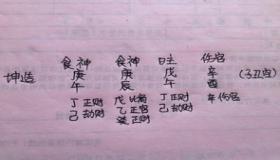 食神 食神 日主 伤官
坤造 庚 庚 戊 辛 (子丑空)
午 辰 午 酉
丁正财 戊比肩 丁正财 辛伤官
己劫财 乙正官 己劫财
癸正财